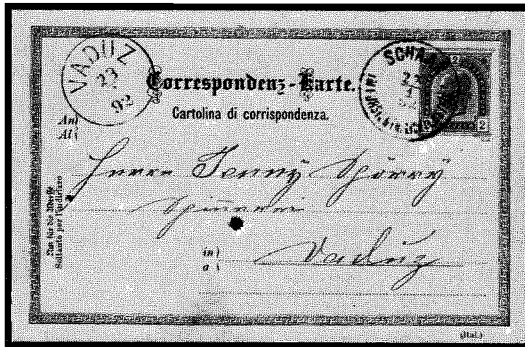 VADUZ
23
92
Correspondenz-Karte.
Cartolina di corrispondenza.
SCHAAN
2
2
An
Al
Herrn Jenny Spörry
Spinnerei
in
a
Vaduz
Nur für die Adresse
Soltanto per l'indirizzo
(Ital.)